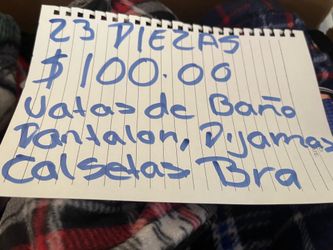 23 PIEZAS
$100.00
Vatas de Baño
Pantalon, Pijamas
Calsetas Bra